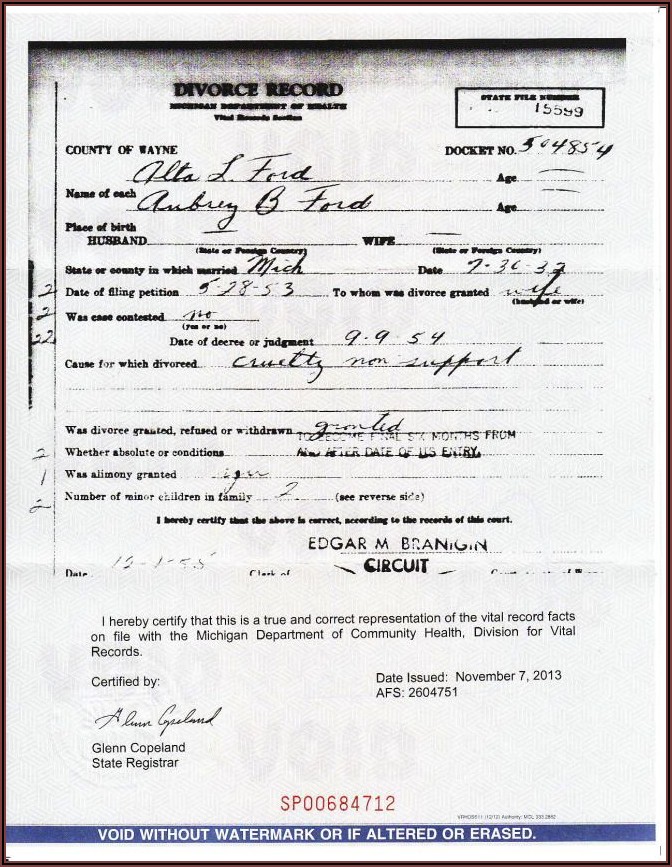 DIVORCE RECORD
MICHIGAN DEPARTMENT OF HEALTH
Vital Records Section
STATE FILE NUMBER
15599
COUNTY OF WAYNE DOCKET NO. 504854
Alta L. Ford Age
Name of each Aubrey B Ford Age
Place of birth
HUSBAND WIFE
(State or Foreign Country) (State or Foreign Country)
State or county in which married Mich Date
2 Date of filing petition 5-28-53 To whom was divorce granted wife
(husband or wife)
2 Was case contested no
(yes or no)
22 Date of decree or judgment 9-9-54
Cause for which divorced cruelty non support
Was divorce granted, refused or withdrawn granted
TO BECOME FINAL SIX MONTHS FROM
2 Whether absolute or conditions AND AFTER DATE OF ITS ENTRY.
1 Was alimony granted
2 Number of minor children in family 2 (see reverse side)
I hereby certify that the above is correct, according to the records of this court.
EDGAR M. BRANIGIN
Date Clerk of CIRCUIT
I hereby certify that this is a true and correct representation of the vital record facts
on file with the Michigan Department of Community Health, Division for Vital
Records.
Certified by: Date Issued: November 7, 2013
AFS: 2604751
Glenn Copeland
Glenn Copeland
State Registrar
SP00684712
VOID WITHOUT WATERMARK OR IF ALTERED OR ERASED.